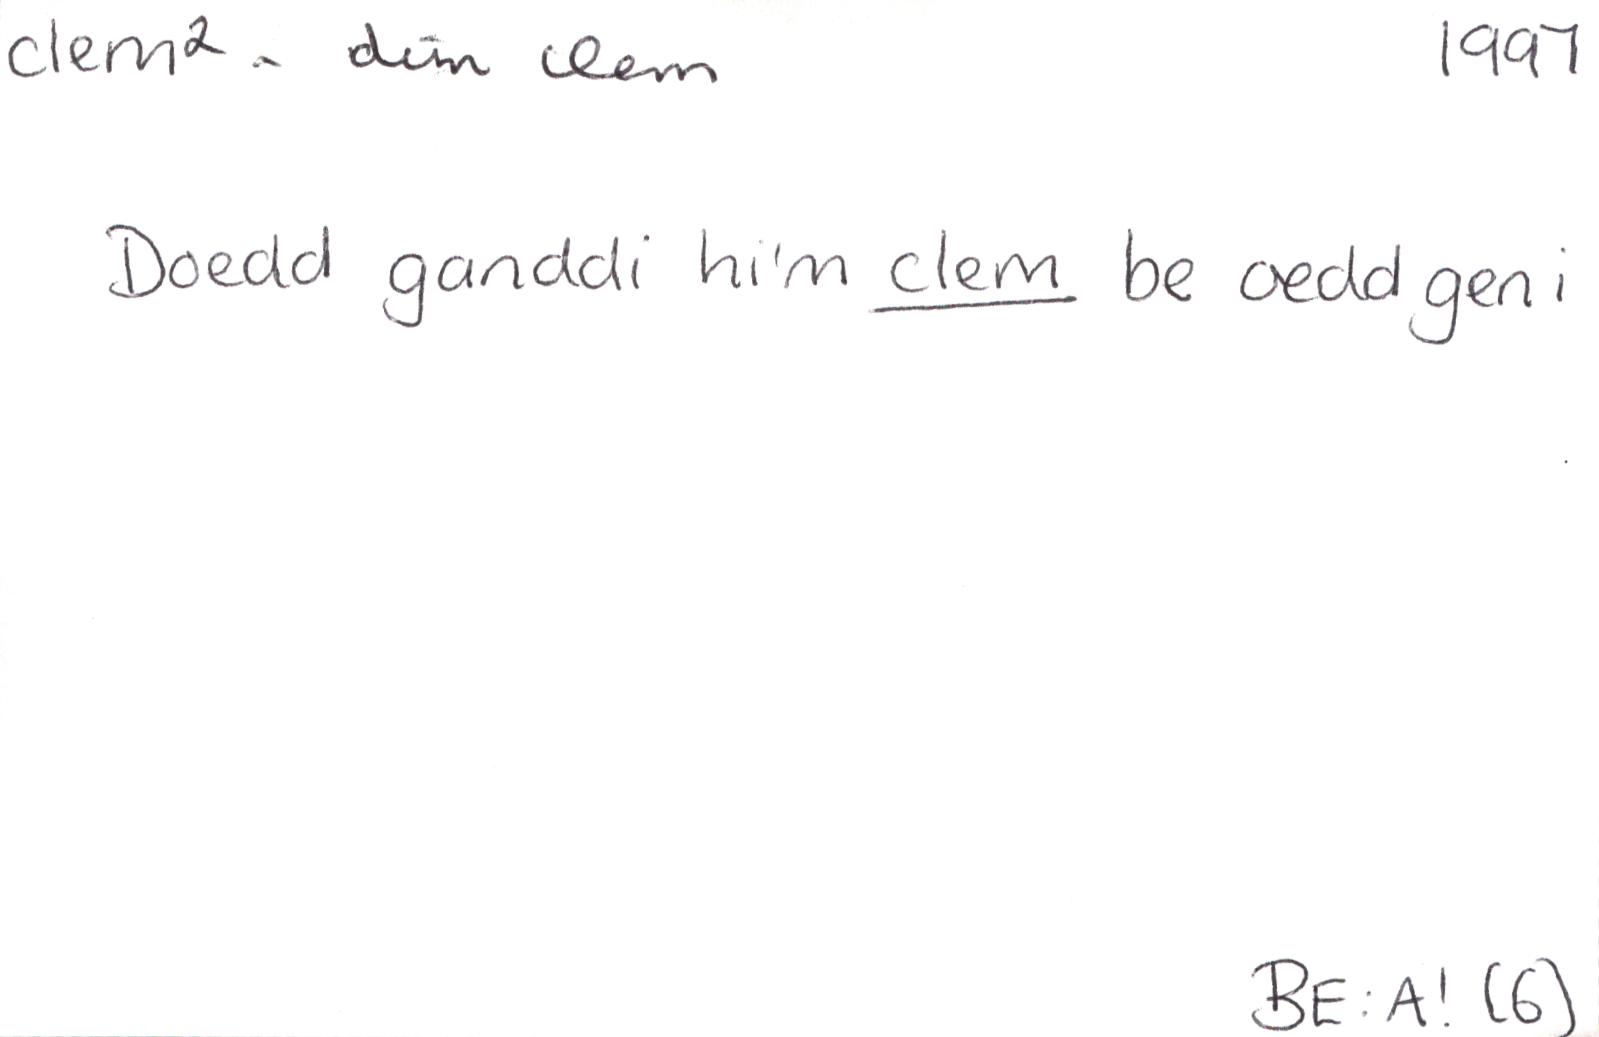 clem² - dim clem 1997
Doedd ganddi hi'm clem be oedd gen i
BE: A! (6)